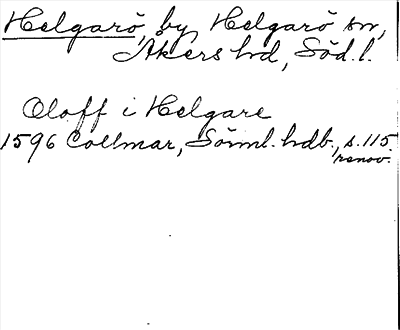 Helgarö, by Helgarö sn,
Åkers hd, Söd. l.
Oloff i Helgare
1596 Collmar, Sörml. hdb., s. 115.
renov.